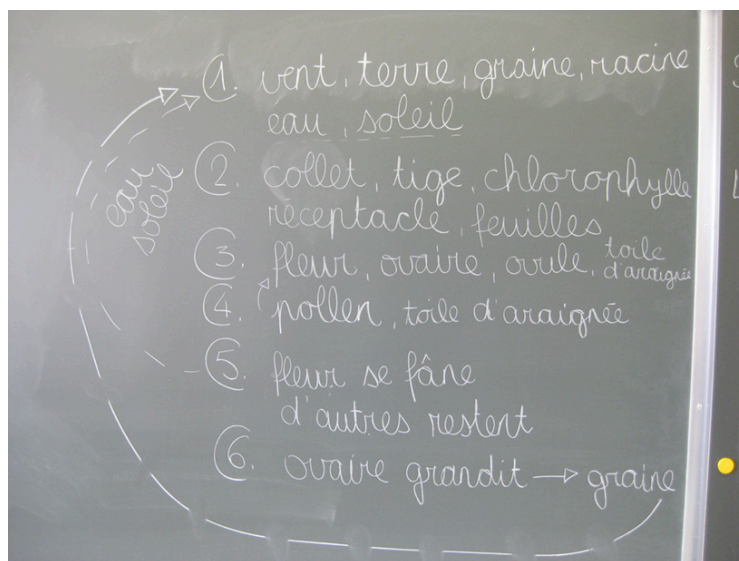 1. vent, terre, graine, racine
eau, soleil
eau
soleil
2. collet, tige, chlorophylle
réceptacle, feuilles
3. fleur, ovaire, ovule, toile
d'araignée
4. pollen, toile d'araignée
5. fleur se fâne
d'autres restent
6. ovaire grandit → graine